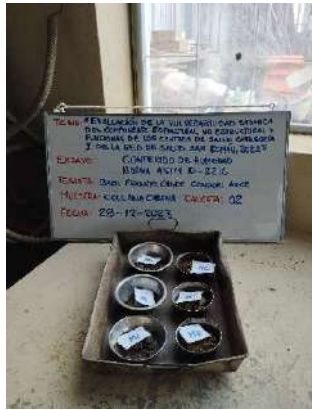 TESIS: "EVALUACIÓN DE LA VULNERABILIDAD SISMICA
DEL COMPONENTE ESTRUCTURAL, NO ESTRUCTURAL Y
FUNCIONAL DE LOS CENTROS DE SALUD CATEGORIA
I DE LA RED DE SALUD SAN ROMÁN, 2022"
ENSAYO: CONTENIDO DE HUMEDAD
NORMA ASTM D-2216
TESISTA: CONDORI
MUESTRA: COLLANA CABANA CALICATA: 02
FECHA: 28-12-2023